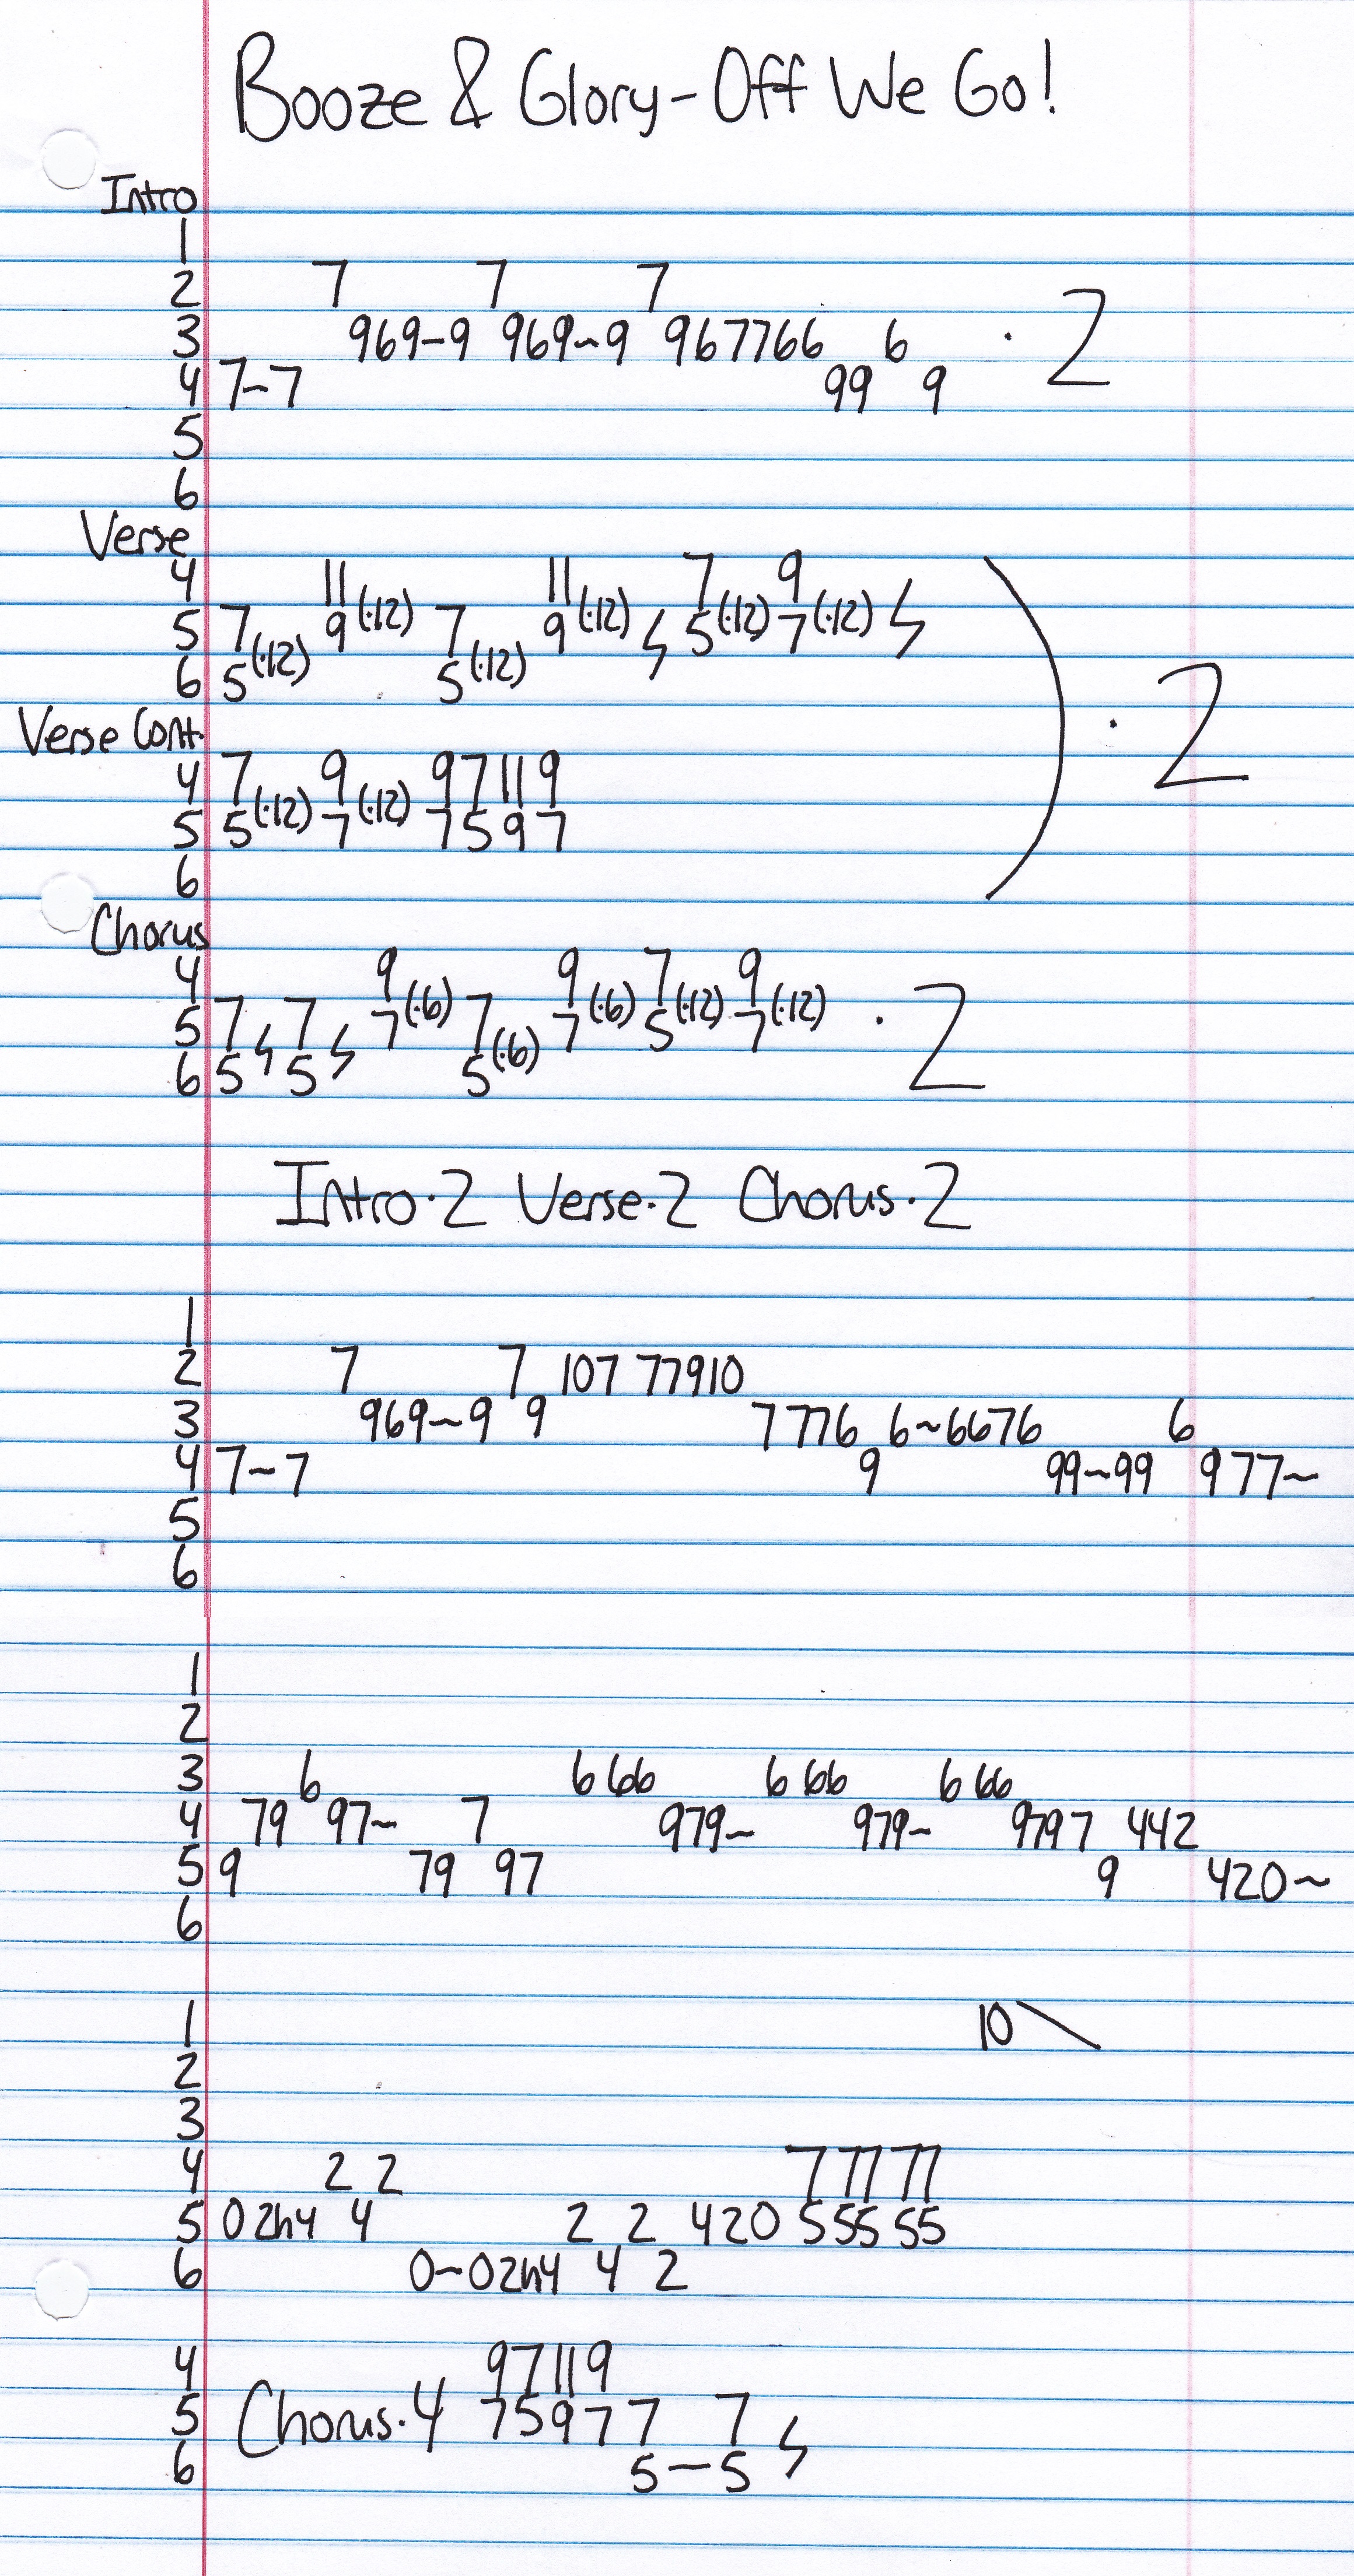 Booze & Glory - Off We Go!
Intro
1
2 7 7 7
3 969-9 969~9 967766 6 · 2
4 7-7 99 9
5
6
Verse
4 11 11 7 9
5 7 9 (·12) 7 9 (·12) ϟ 5 (·12) 7 (·12) ϟ
6 5 (·12) 5 (·12)
) · 2
Verse Cont.
4 7 9 9 7 11 9
5 5 (·12) 7 (·12) 7 5 9 7
6
Chorus
4 9 9 7 9
5 7 ϟ 7 ϟ 7 (·6) 7 7 (·6) 5 (·12) 7 (·12) · 2
6 5 5 5 (·6)
Intro·2 Verse·2 Chorus·2
1
2 7 7 107 77910
3 969~9 9 7 776 6~6676 6
4 7~7 9 99~99 977~
5
6
1
2
3 6 6 66 6 66 6 66
4 79 97~ 7 979~ 979~ 9797 442
5 9 79 97 9 420~
6
1 10\
2
3
4 2 2 7 77 77
5 0 2h4 4 2 2 420 555 55
6 0~02h4 4 2
4 9 7 11 9
5 Chorus·4 7 5 9 7 7 7 ϟ
6 5—5